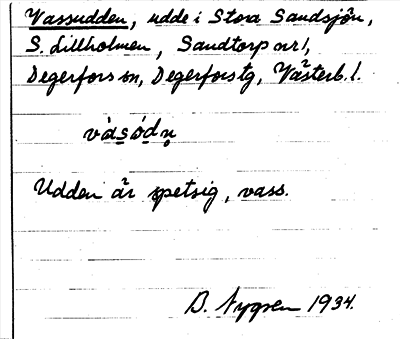 Vassudden, udde i Stora Sandsjön,
S. Lillholmen, Sandtorp nr 1,
Degerfors sn, Degerfors tg, Västerb. l.
vàsódn̥
Udden är spetsig, vass.
B. Nygren 1934.